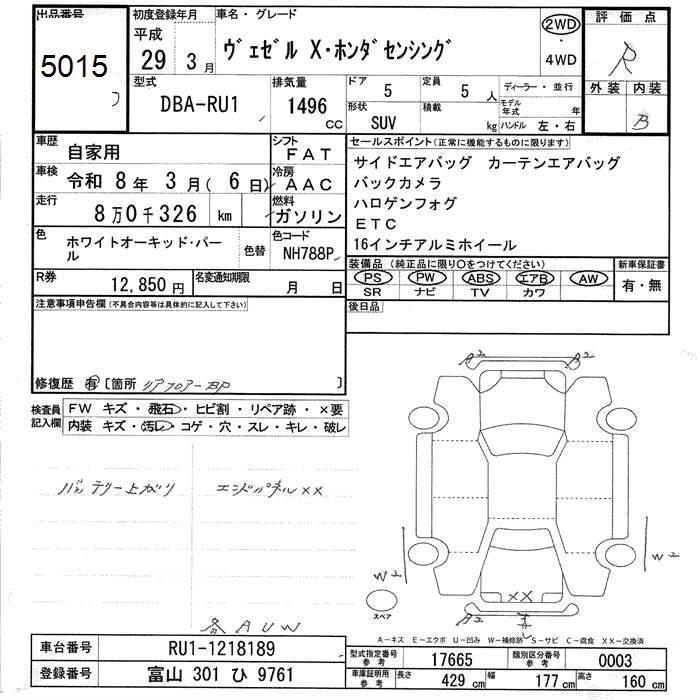 出品番号 初度登録年月 車名・グレード 2WD 評価点
5015 平成 29 3月 ヴェゼル X・ホンダセンシング ・ 4WD R
型式 排気量 ドア 5 定員 5 人 ディーラー・並行 外装 内装
DBA-RU1 1496 cc 形状 SUV 積載 kg モデル年式 年 B
ハンドル 左・右
車歴 自家用 シフト FAT セールスポイント(正常に機能するものに限ります)
車検 令和 8年 3月( 6日) 冷房 AAC サイドエアバッグ カーテンエアバッグ
バックカメラ
走行 8万0千326 km 燃料 ガソリン ハロゲンフォグ
ETC
色 ホワイトオーキッド・パール 色替 色コード NH788P 16インチアルミホイール
R券 12,850円 名変通知期限 月 日 装備品(純正品に限り○をつけてください) 新車保証書
PS PW ABS エアB AW 有・無
SR ナビ TV カワ
注意事項申告欄(不具合内容等は具体的に記入して下さい) 後日品
修復歴 有 [箇所 リアフロアーBP ]
検査員記入欄 FW キズ・飛石・ヒビ割・リペア跡・×要
内装 キズ・汚レ・コゲ・穴・スレ・キレ・破レ
A2 A2
バッテリー上がり エンドパネルXX
W2 W2
XX
スペア A2
AUW
A-キズ E-エクボ U-凹み W-補修跡 S-サビ C-腐食 XX-交換済
車台番号 RU1-1218189 型式指定番号 参考 17665 類別区分番号 参考 0003
登録番号 富山 301 ひ 9761 車庫証明用 参考 長さ 429 cm 幅 177 cm 高さ 160 cm